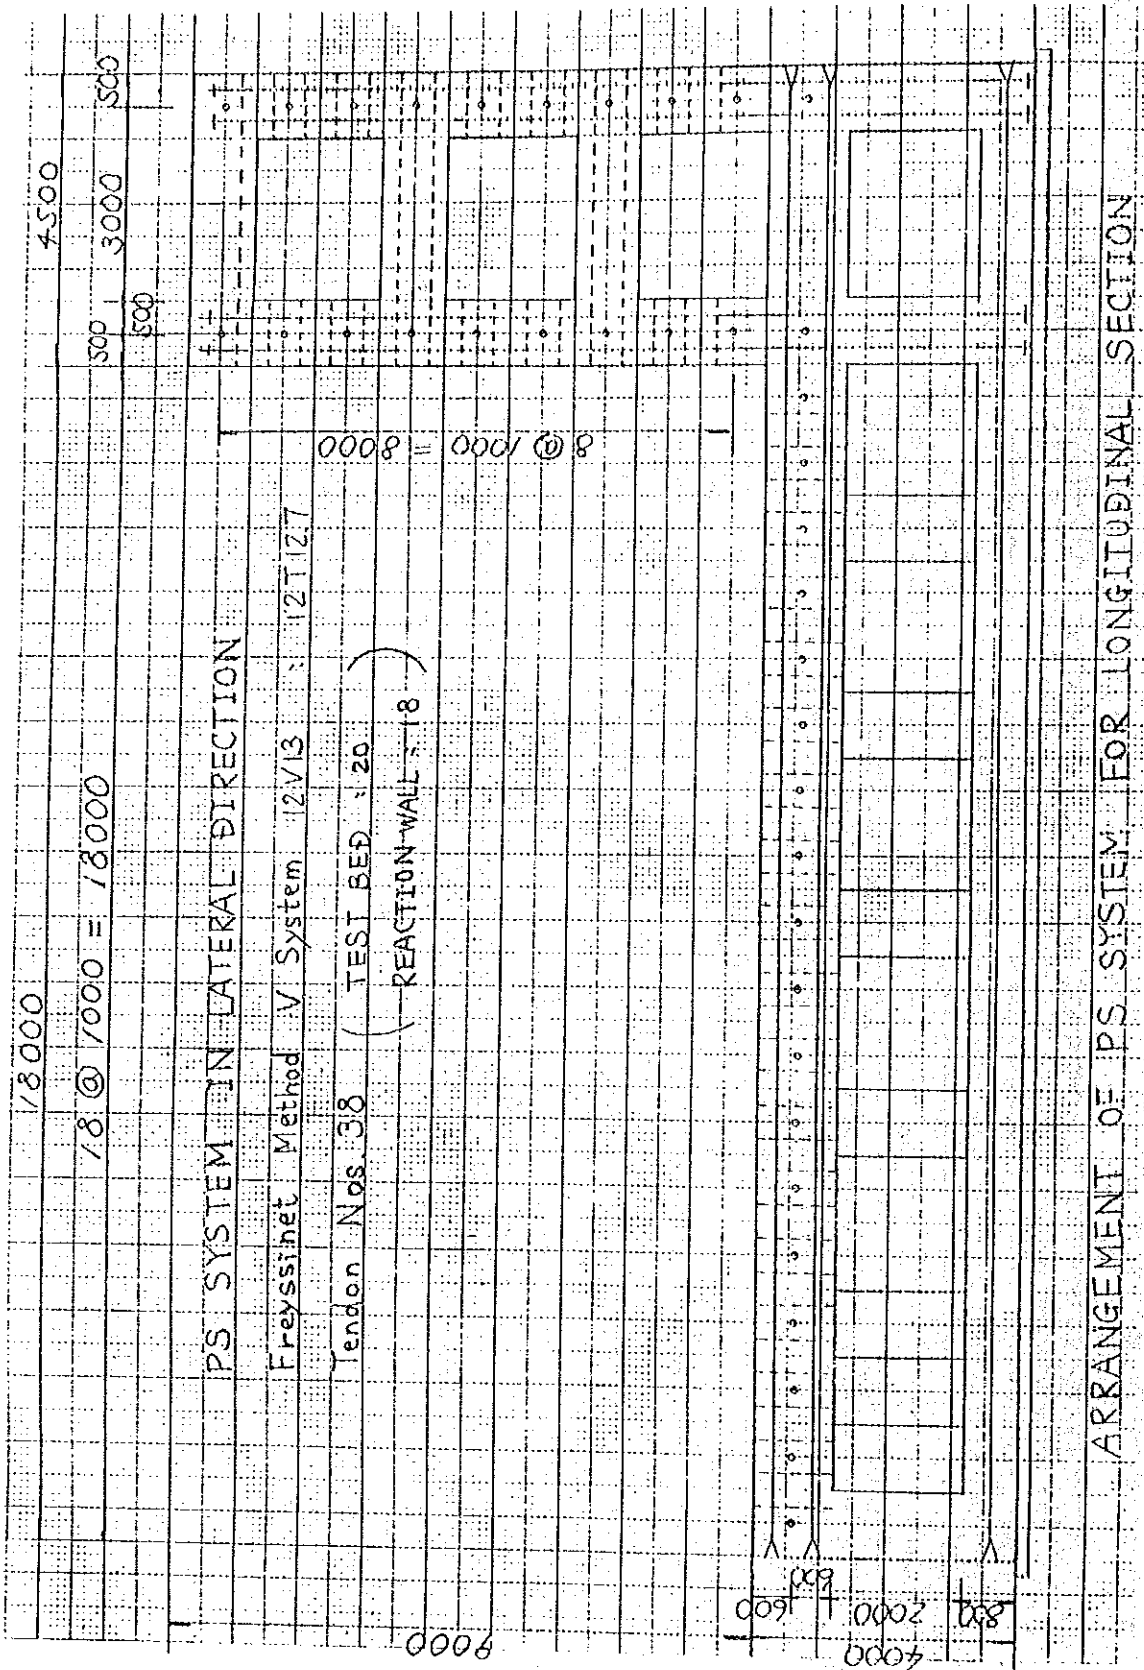 18000
4500
18 @ 1000 = 18000
500
3000
500
500
PS SYSTEM IN LATERAL DIRECTION
Freyssinet Method V System 12V13 : 12T12.7
Tendon Nos. 38 ( TEST BED : 20
REACTION WALL : 18 )
8 @ 1000 = 8000
9000
600
600
2000
800
4000
ARRANGEMENT OF PS SYSTEM FOR LONGITUDINAL SECTION